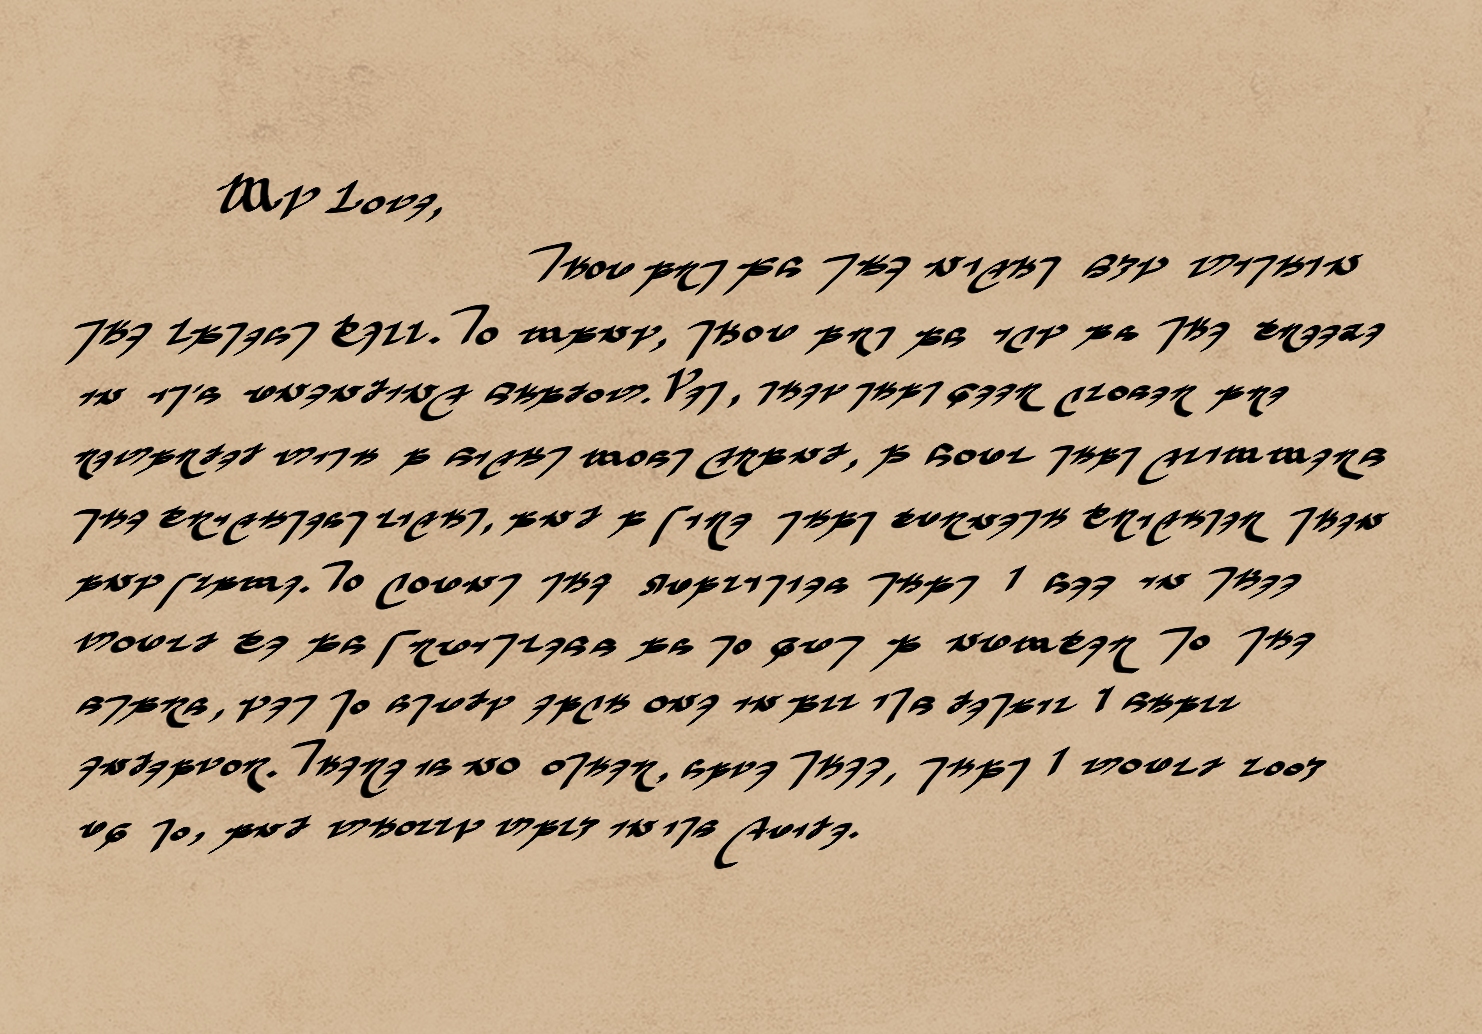 My Love,
Thou art as the night sky within
the latest bell. To many, thou art as icy as the breeze
in it's unending shadow. Yet, they that peer closer are
rewarded with a sight most grand, a soul that glimmers
the brightest light, and a fire that burneth brighter then
any flame. To count the qualities that I see in thee
would be as fruitless as to put a number to the
stars, yet to study each one in all its detail I shall
endeavor. There is no other, save thee, that I would look
up to, and wholly walk in its guide.